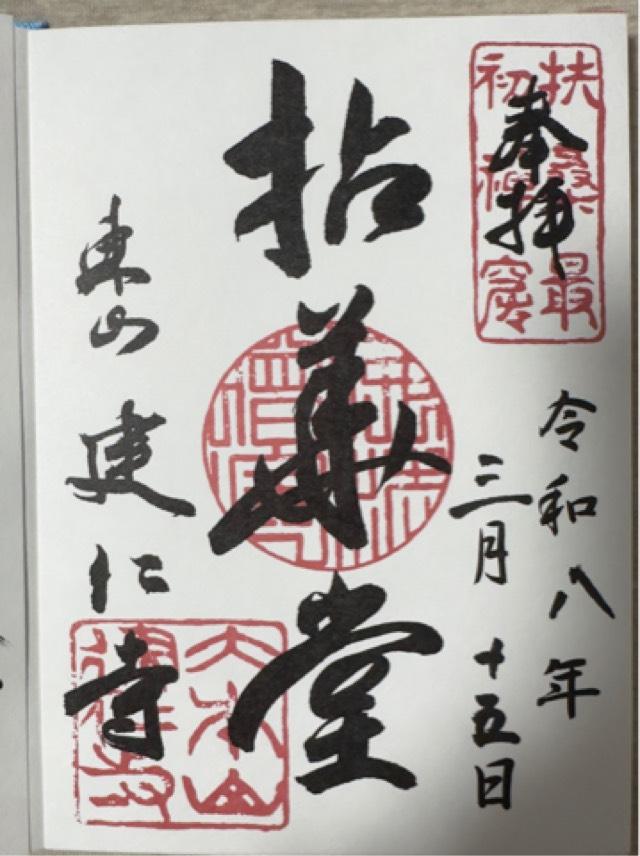 扶桑最
初禪窟
奉拝
令和八年
三月十五日
拈華堂
東山 建仁寺
大本山
建仁寺